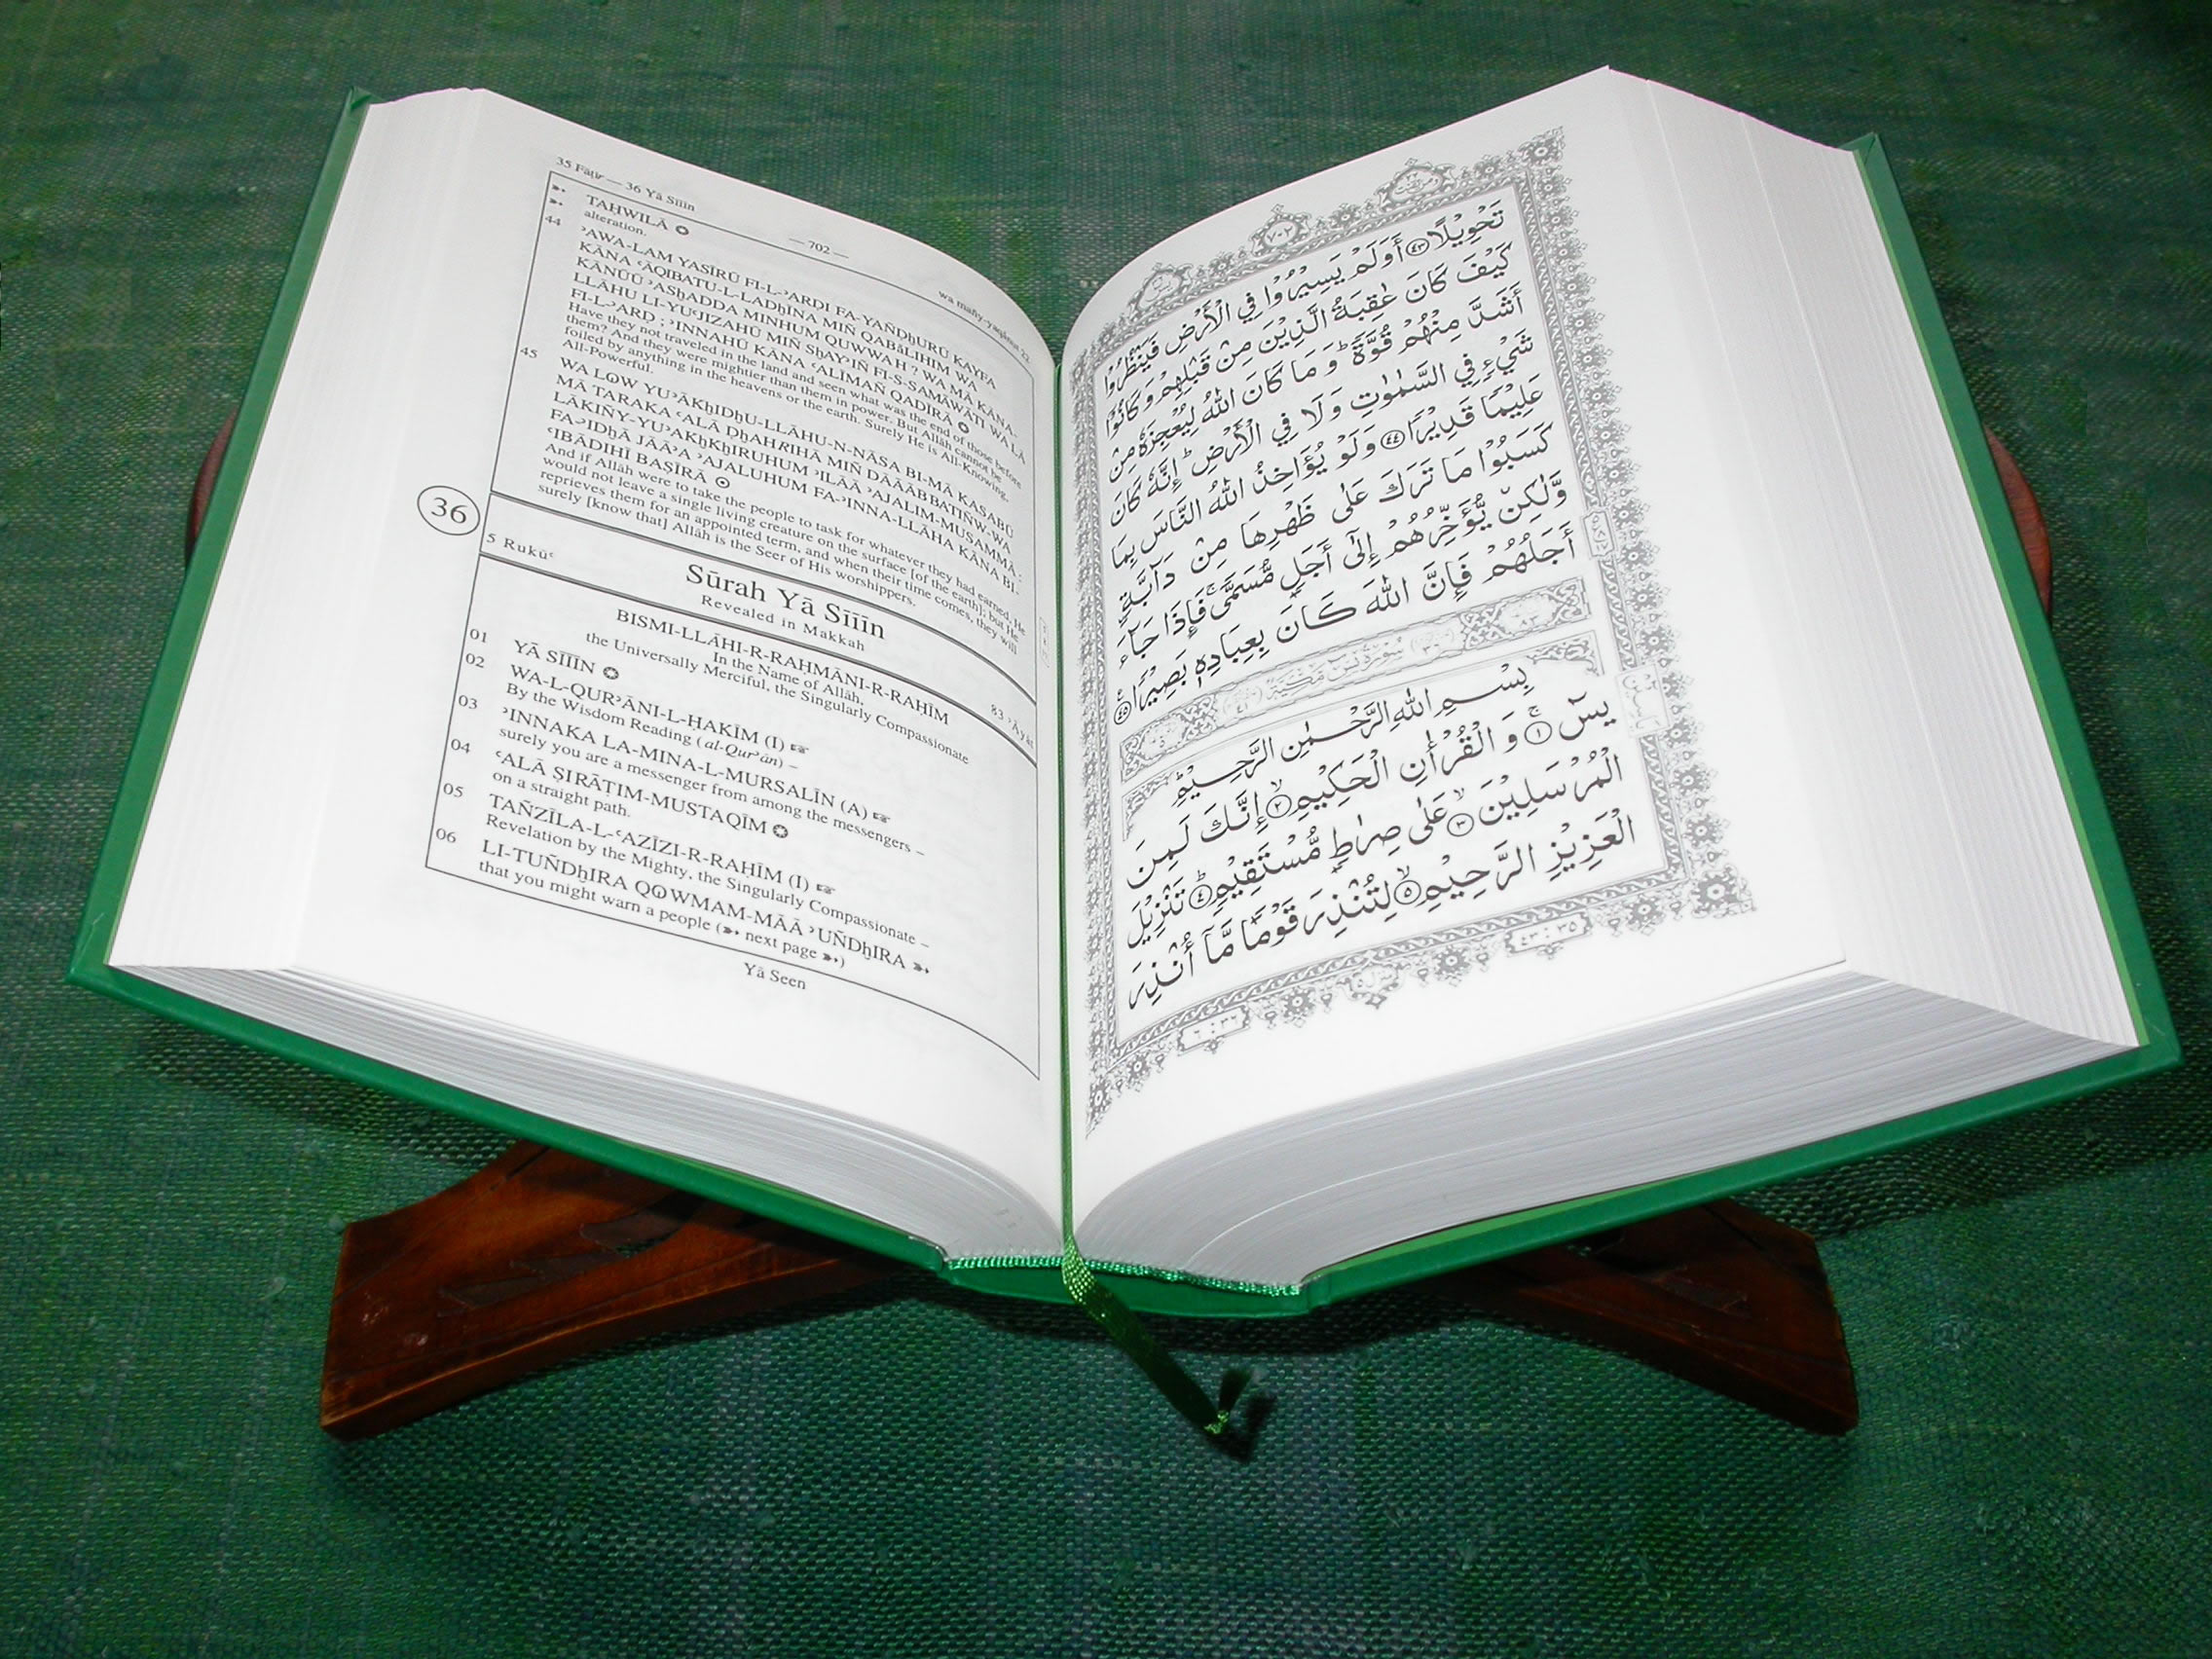 35 Fāṭir — 36 Yā Sīīīn
— 702 —
wa mañy-yaqinut 22
TAḤWĪLĀ ✪
alteration.
44 ʾAWA-LAM YASĪRŪ FI-L-ʾARḌI FA-YAÑDḥURŪ KAYFA
KĀNA ʿĀQIBATU-L-LADḥĪNA MIÑ QABᵃLIHIM WA
KĀNŪŪ ʾASḥADDA MINHUM QUWWAH ? WA MĀ KĀNA-
LLĀHU LI-YUʿJIZAHŪ MIÑ SḥAYʾIÑ FI-S-SAMĀWĀTI WA LĀ
FI-L-ʾARD ; ʾINNAHŪ KĀNA ʿALĪMAÑ QADĪRĀ ✪
Have they not traveled in the land and seen what was the end of those before
them? And they were mightier than them in power. But Allāh cannot be
foiled by anything in the heavens or the earth. Surely He is All-Knowing,
All-Powerful.
45 WA LOW YUʾĀKḥIDḥU-LLĀHU-N-NĀSA BI-MĀ KASABŪ
MĀ TARAKA ʿALĀ DḥAHRIHĀ MIÑ DĀĀĀBBATIÑW-WA
LĀKIÑY-YUʾAKḥKḥIRUHUM ʾILĀĀ ʾAJALIM-MUSAMMĀ ;
FA-ʾIDḥĀ JĀĀʾA ʾAJALUHUM FA-ʾINNA-LLĀHA KĀNA BI-
ʿIBĀDIHĪ BAṢĪRĀ ⊙
And if Allāh were to take the people to task for whatever they had earned, He
would not leave a single living creature on the surface [of the earth]; but He
reprieves them for an appointed term, and when their time comes, they will
surely [know that] Allāh is the Seer of His worshippers.
36
5 Rukūʿ
Sūrah Yā Sīīīn
Revealed in Makkah
83 ʾĀyāt
BISMI-LLĀHI-R-RAḤMĀNI-R-RAḤĪM
In the Name of Allāh,
the Universally Merciful, the Singularly Compassionate
01 YĀ SĪĪĪN ✪
02 WA-L-QURʾĀNI-L-ḤAKĪM (I) ☞
By the Wisdom Reading (al-Qurʾān) –
03 ʾINNAKA LA-MINA-L-MURSALĪN (A) ☞
surely you are a messenger from among the messengers –
04 ʿALĀ ṢIRĀṬIM-MUSTAQĪM ✪
on a straight path.
05 TAÑZĪLA-L-ʿAZĪZI-R-RAḤĪM (I) ☞
Revelation by the Mighty, the Singularly Compassionate –
06 LI-TUÑDḥIRA QOWMAM-MĀĀ ʾUÑDḥIRA ➳
that you might warn a people (➳ next page ➳)
Yā Seen
٧٠٢
تَحْوِيْلًا ٤٣ أَوَلَمْ يَسِيْرُوْا فِي الْأَرْضِ فَيَنْظُرُوْا
كَيْفَ كَانَ عٰقِبَةُ الَّذِيْنَ مِنْ قَبْلِهِمْ وَكَانُوْٓا
أَشَدَّ مِنْهُمْ قُوَّةً ؕ وَمَا كَانَ اللّٰهُ لِيُعْجِزَهٗ مِنْ
شَيْءٍ فِي السَّمٰوٰتِ وَلَا فِي الْأَرْضِ ؕ إِنَّهٗ كَانَ
عَلِيْمًا قَدِيْرًا ٤٤ وَلَوْ يُؤَاخِذُ اللّٰهُ النَّاسَ بِمَا
كَسَبُوْا مَا تَرَكَ عَلٰى ظَهْرِهَا مِنْ دَآبَّةٍ
وَّلٰكِنْ يُّؤَخِّرُهُمْ إِلٰٓى أَجَلٍ مُّسَمًّى ۚ فَإِذَا جَآءَ
أَجَلُهُمْ فَإِنَّ اللّٰهَ كَانَ بِعِبَادِهٖ بَصِيْرًا ٤٥
سُوْرَةُ يٰسٓ مَكِّيَّةٌ
بِسْمِ اللّٰهِ الرَّحْمٰنِ الرَّحِيْمِ
يٰسٓ ۚ ١ وَالْقُرْاٰنِ الْحَكِيْمِ ۙ ٢ إِنَّكَ لَمِنَ
الْمُرْسَلِيْنَ ۙ ٣ عَلٰى صِرَاطٍ مُّسْتَقِيْمٍ ؕ ٤ تَنْزِيْلَ
الْعَزِيْزِ الرَّحِيْمِ ۙ ٥ لِتُنْذِرَ قَوْمًا مَّآ أُنْذِرَ
٤٣ : ٣٥
٦ : ٣٦